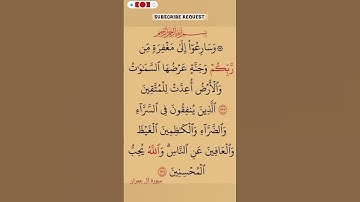 SUBSCRIBE REQUEST
بسم الله الرحمن الرحيم
۞ وَسَارِعُوٓا۟ إِلَىٰ مَغْفِرَةٍ مِّن
رَّبِّكُمْ وَجَنَّةٍ عَرْضُهَا السَّمَٰوَٰتُ
وَالْأَرْضُ أُعِدَّتْ لِلْمُتَّقِينَ
۝١٣٣ الَّذِينَ يُنفِقُونَ فِى السَّرَّآءِ
وَالضَّرَّآءِ وَالْكَٰظِمِينَ الْغَيْظَ
وَالْعَافِينَ عَنِ النَّاسِ ۗ وَاللَّهُ يُحِبُّ
الْمُحْسِنِينَ ۝١٣٤
سورة آل عمران